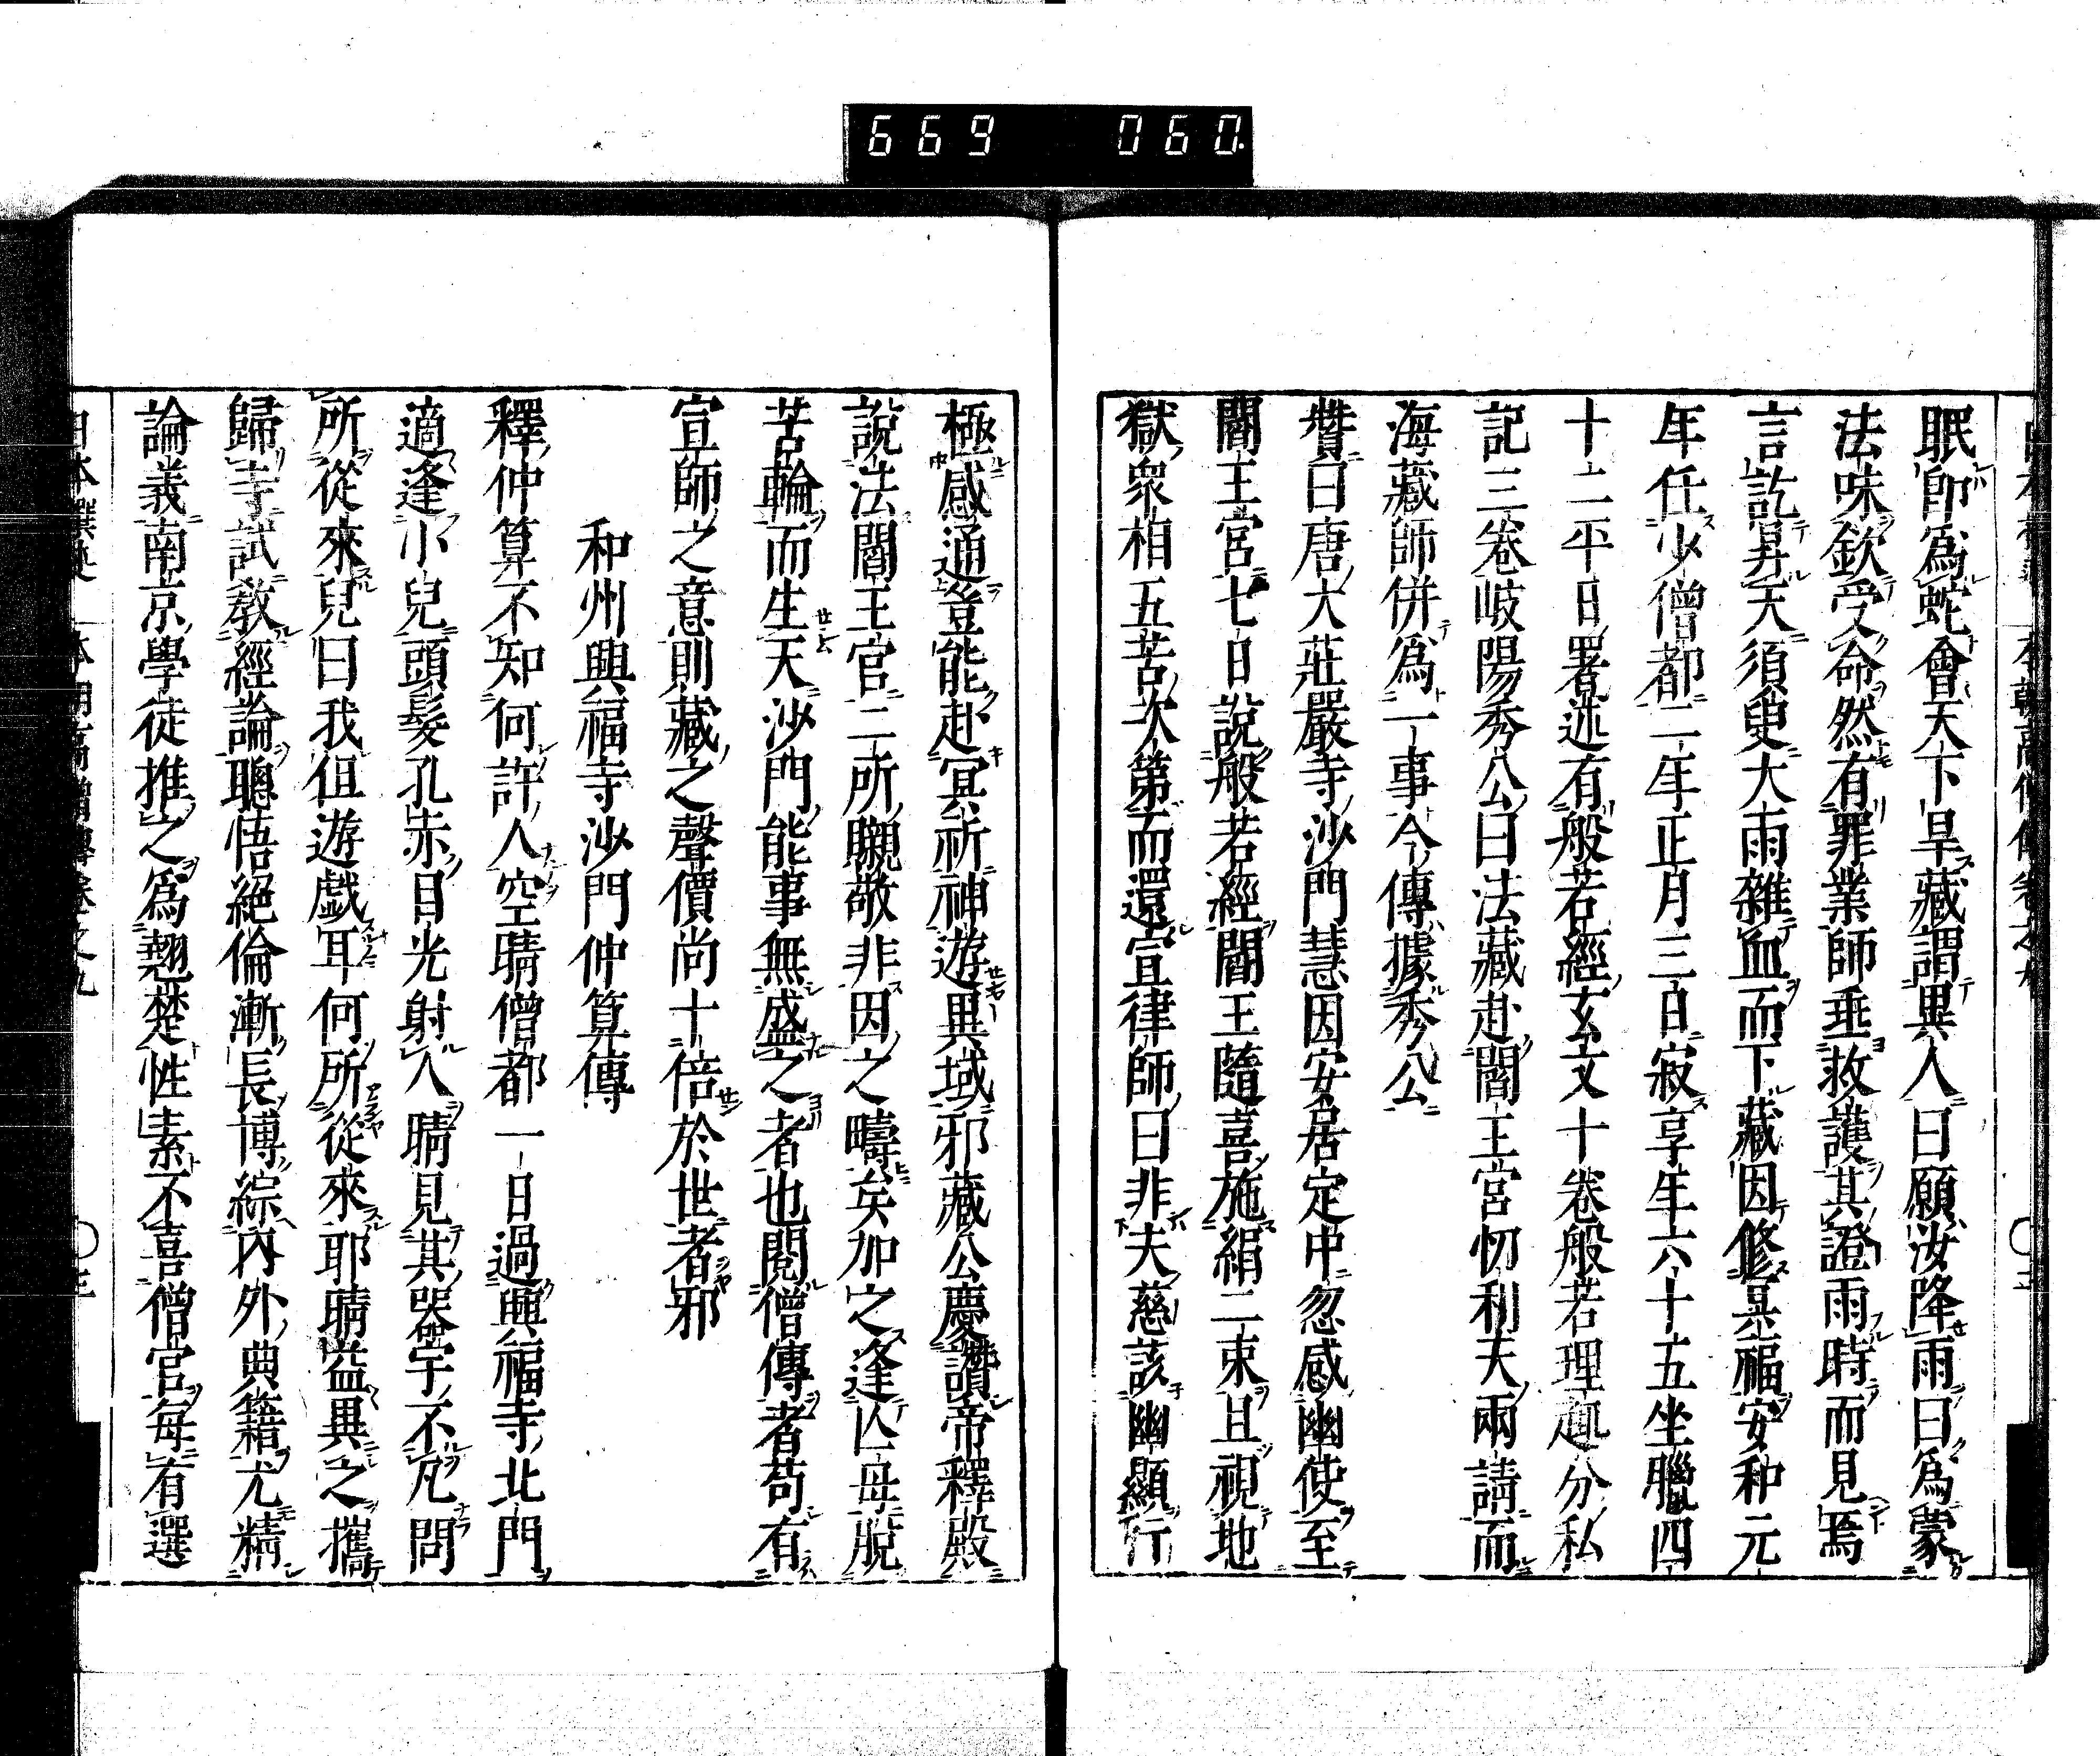 669 060
眠卽爲蛇會天下旱藏謂異人曰願汝降雨曰爲蒙
法味欽受命然有罪業師垂救護其證雨時而見焉
言訖昇天須臾大雨雜血而下藏因修冥福安和元
年任少僧都二年正月三日寂享年六十五坐臘四
十二平日署述有般若經玄文十卷般若理趣分私
記三卷岐陽秀公曰法藏赴閻王宮忉利天兩請而
海藏師併爲一事今傳據秀公
贊曰唐大莊嚴寺沙門慧因安居定中忽感幽使至
閻王宮七日說般若經閻王隨喜施絹二束且視地
獄衆相五苦次第而還宣律師曰非夫慈該幽顯行
極感通豈能赴冥祈神遊異域邪藏公慶讚帝釋殿
說法閻王官二所䞋敬非因之疇矣加之逢亾母脫
苦輪而生天沙門能事無盛之者也閱僧傳者苟有
宣師之意則藏之聲價尚十倍於世者邪
和州興福寺沙門仲算傳
釋仲算不知何許人空晴僧都一日過興福寺北門
適逢小兒頭髮孔赤目光射人晴見其器宇不凡問
所從來兒曰我但遊戲耳何所從來耶晴益異之攜
歸寺試敎經論聰悟絕倫漸長博綜內外典籍尤精
論義南京學徒推之爲翹楚性素不喜僧官每有選